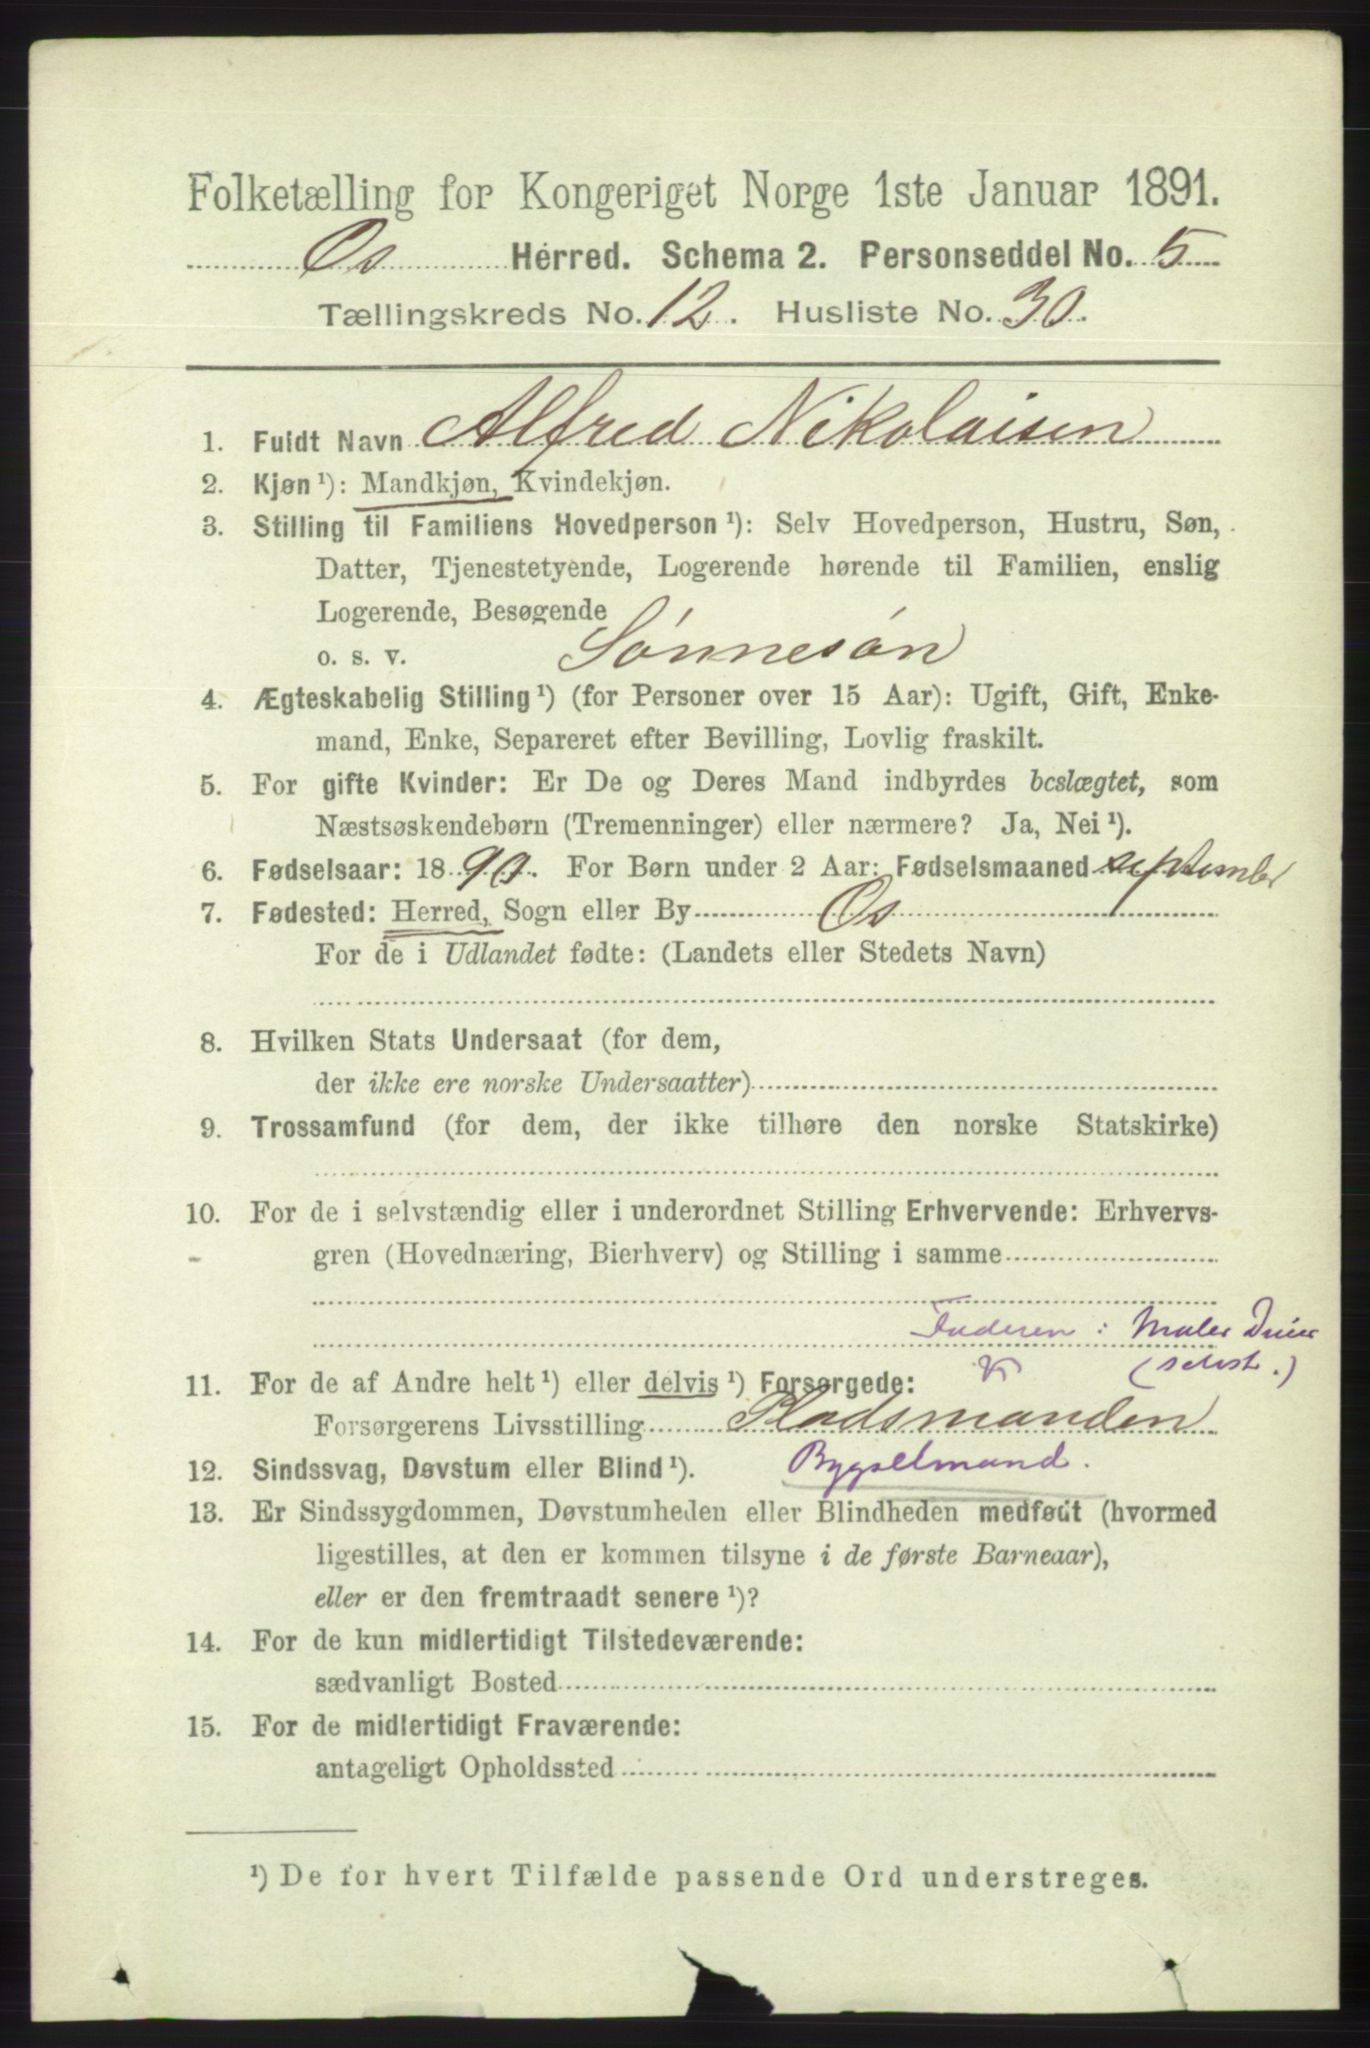 Folketælling for Kongeriget Norge 1ste Januar 1891.
Os Herred. Schema 2. Personseddel No. 5
Tællingskreds No. 12. Husliste No. 30.
1. Fuldt Navn Alfred Nikolaisen
2. Kjøn ¹): Mandkjøn, Kvindekjøn.
3. Stilling til Familiens Hovedperson ¹): Selv Hovedperson, Hustru, Søn,
Datter, Tjenestetyende, Logerende hørende til Familien, enslig
Logerende, Besøgende
o. s. v. Sønnesøn
4. Ægteskabelig Stilling ¹) (for Personer over 15 Aar): Ugift, Gift, Enke-
mand, Enke, Separeret efter Bevilling, Lovlig fraskilt.
5. For gifte Kvinder: Er De og Deres Mand indbyrdes beslægtet, som
Næstsøskendebørn (Tremenninger) eller nærmere? Ja, Nei ¹).
6. Fødselsaar: 1890. For Børn under 2 Aar: Fødselsmaaned september
7. Fødested: Herred, Sogn eller By Os
For de i Udlandet fødte: (Landets eller Stedets Navn)
8. Hvilken Stats Undersaat (for dem,
der ikke ere norske Undersaatter)
9. Trossamfund (for dem, der ikke tilhøre den norske Statskirke)
10. For de i selvstændig eller i underordnet Stilling Erhvervende: Erhvervs-
gren (Hovednæring, Bierhverv) og Stilling i samme
Faderen: Maler
11. For de af Andre helt ¹) eller delvis ¹) Forsørgede:
Forsørgerens Livsstilling Pladsmanden
12. Sindssvag, Døvstum eller Blind ¹). Bygselmand.
13. Er Sindssygdommen, Døvstumheden eller Blindheden medfødt (hvormed
ligestilles, at den er kommen tilsyne i de første Barneaar),
eller er den fremtraadt senere ¹)?
14. For de kun midlertidigt Tilstedeværende:
sædvanligt Bosted
15. For de midlertidigt Fraværende:
antageligt Opholdssted
¹) De for hvert Tilfælde passende Ord understreges.